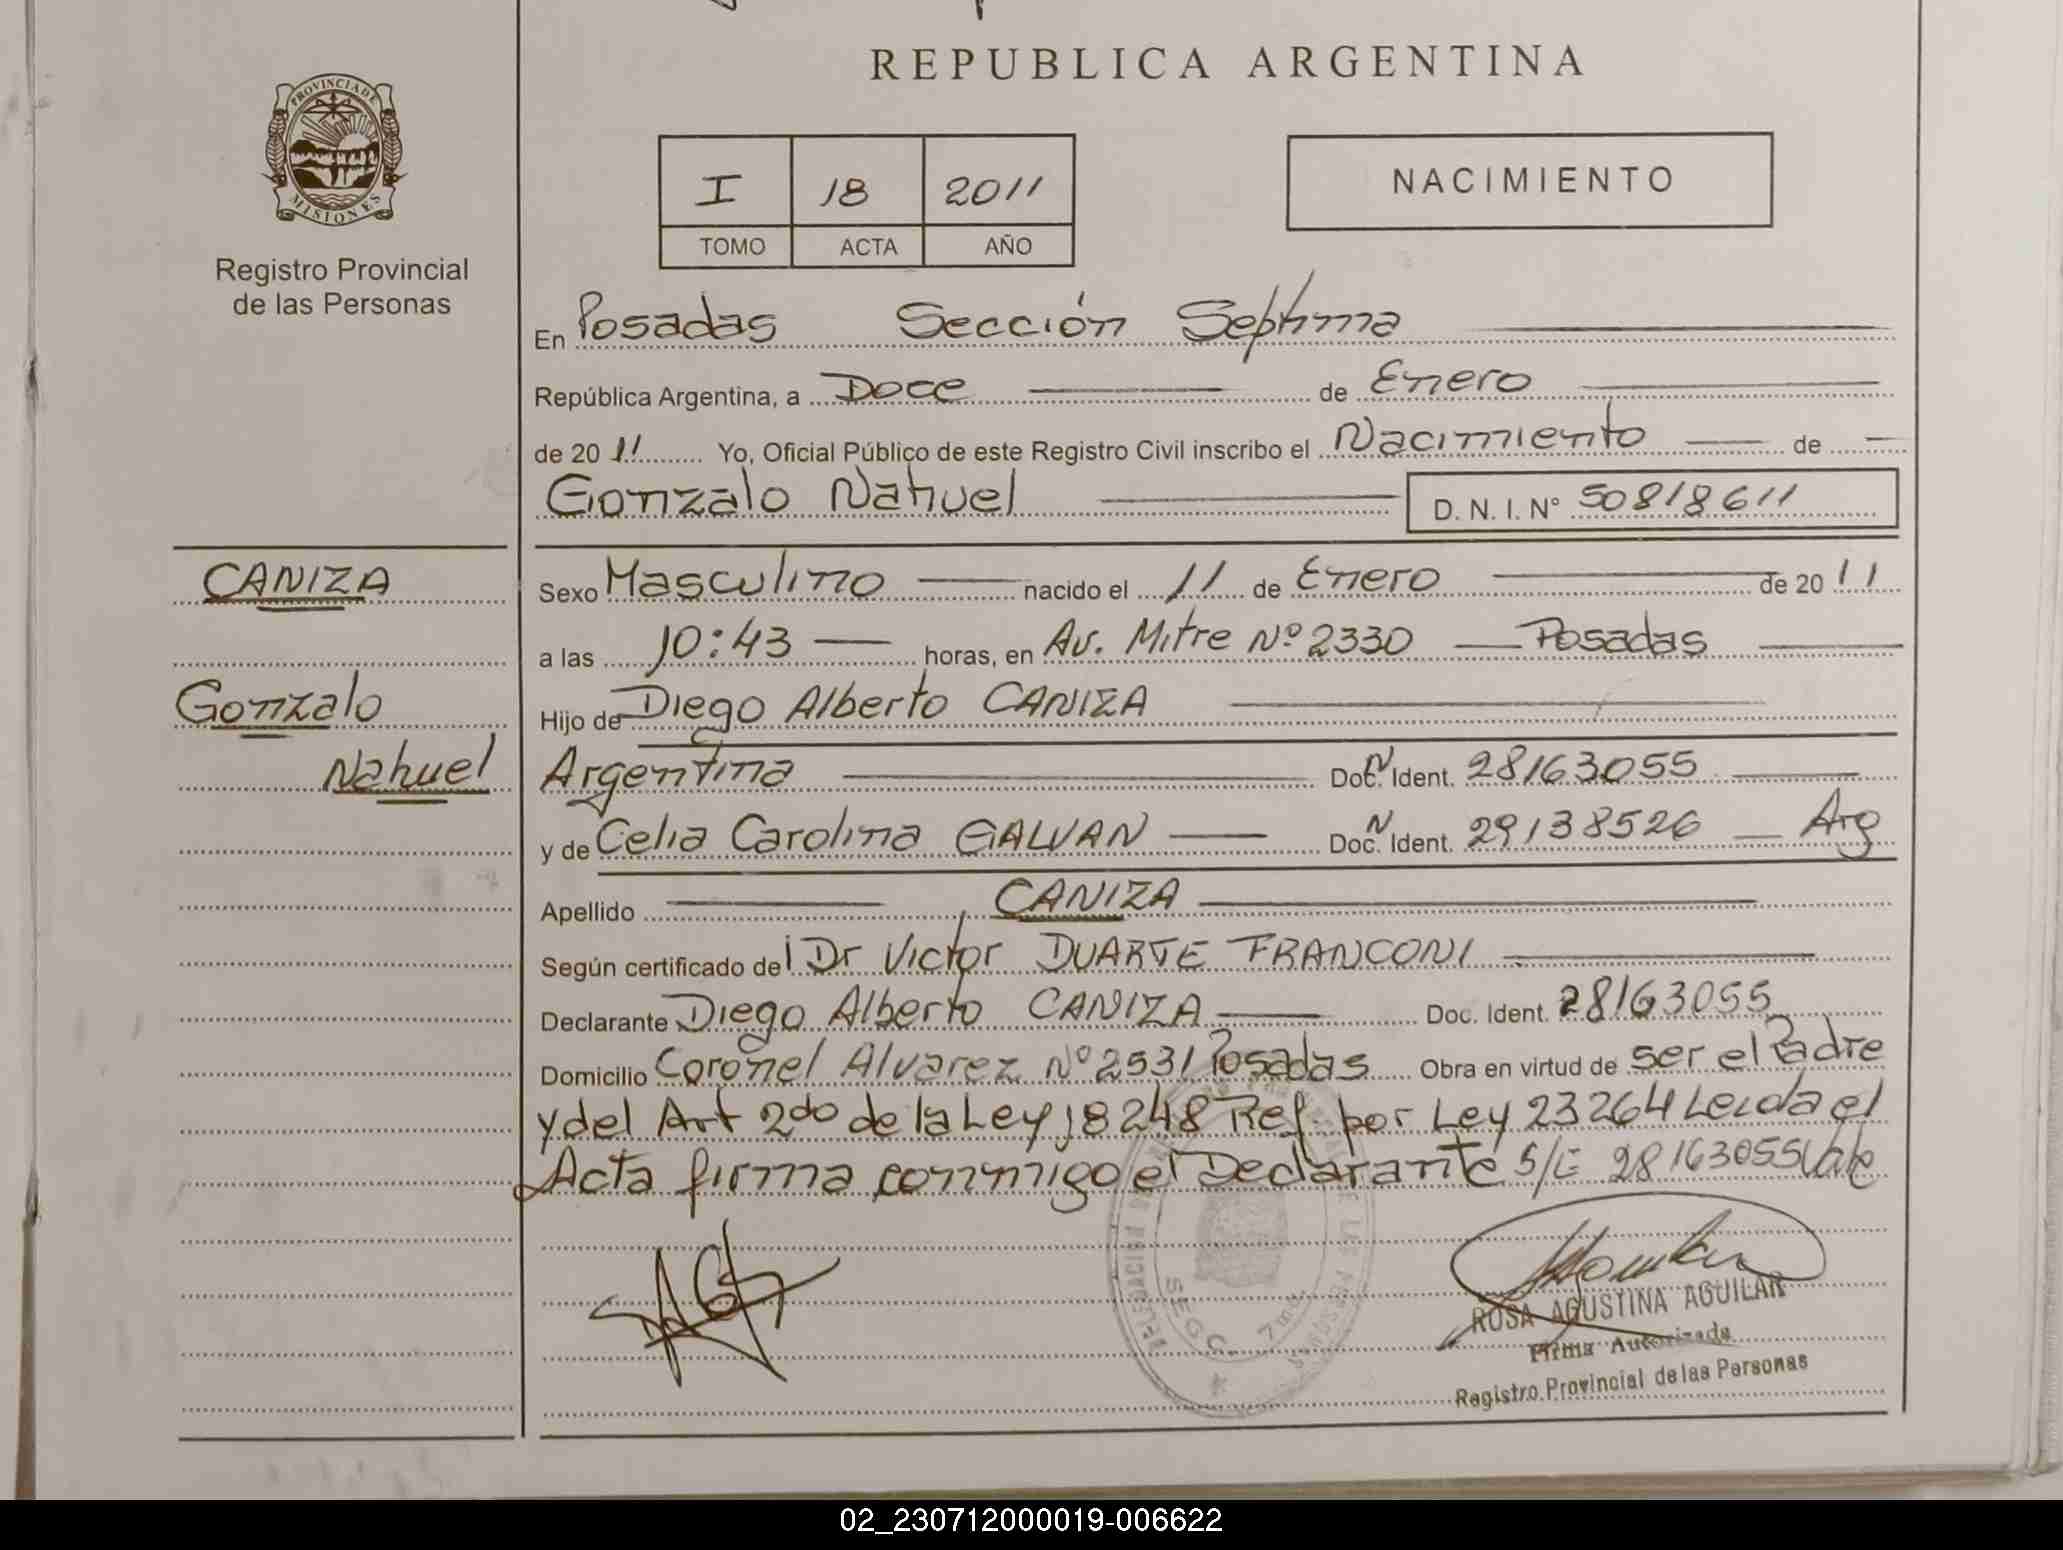 REPUBLICA ARGENTINA
PROVINCIA DE
MISIONES
Registro Provincial
de las Personas
I 18 2011
TOMO ACTA AÑO
NACIMIENTO
En Posadas Sección Septima
República Argentina, a Doce de Enero
de 20 11 Yo, Oficial Público de este Registro Civil inscribo el Nacimiento de
Gonzalo Nahuel D. N. I. N° 50818611
CANIZA
Gonzalo
Nahuel
Sexo Masculino nacido el 11 de Enero de 20 11
a las 10:43 horas, en Av. Mitre Nº 2330 Posadas
Hijo de Diego Alberto CANIZA
Argentina Doc. N Ident. 28163055
y de Celia Carolina GALVAN Doc. N Ident. 29138526 Arg
Apellido CANIZA
Según certificado del Dr Victor DUARTE FRANCONI
Declarante Diego Alberto CANIZA Doc. Ident. 28163055
Domicilio Coronel Alvarez Nº 2531 Posadas Obra en virtud de ser el Padre
y del Art 2do de la Ley 18248 Ref. por Ley 23264 Leida el
Acta firma conmigo el Declarante S/E 28163055 Vale
SECC. 7ma
ROSA AGUSTINA AGUILAR
Firma Autorizada
Registro Provincial de las Personas
02_230712000019-006622